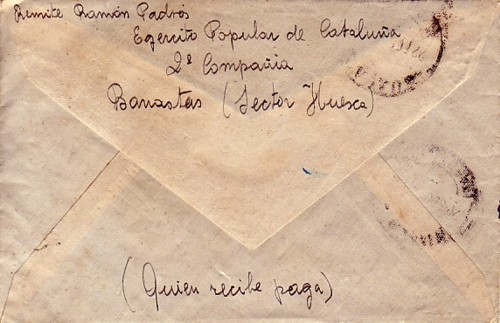 Remite Ramón Padrós
Egercito Popular de Cataluña
2ª Compañia
Banastas (Sector Huesca)
(Quien recibe paga)